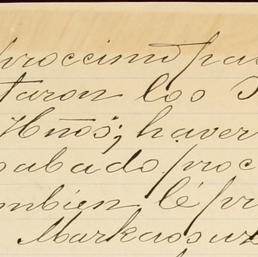 proccimo pa
taron los
Hños"; haver
sabado proc
mbien lé pr
Markaosuz